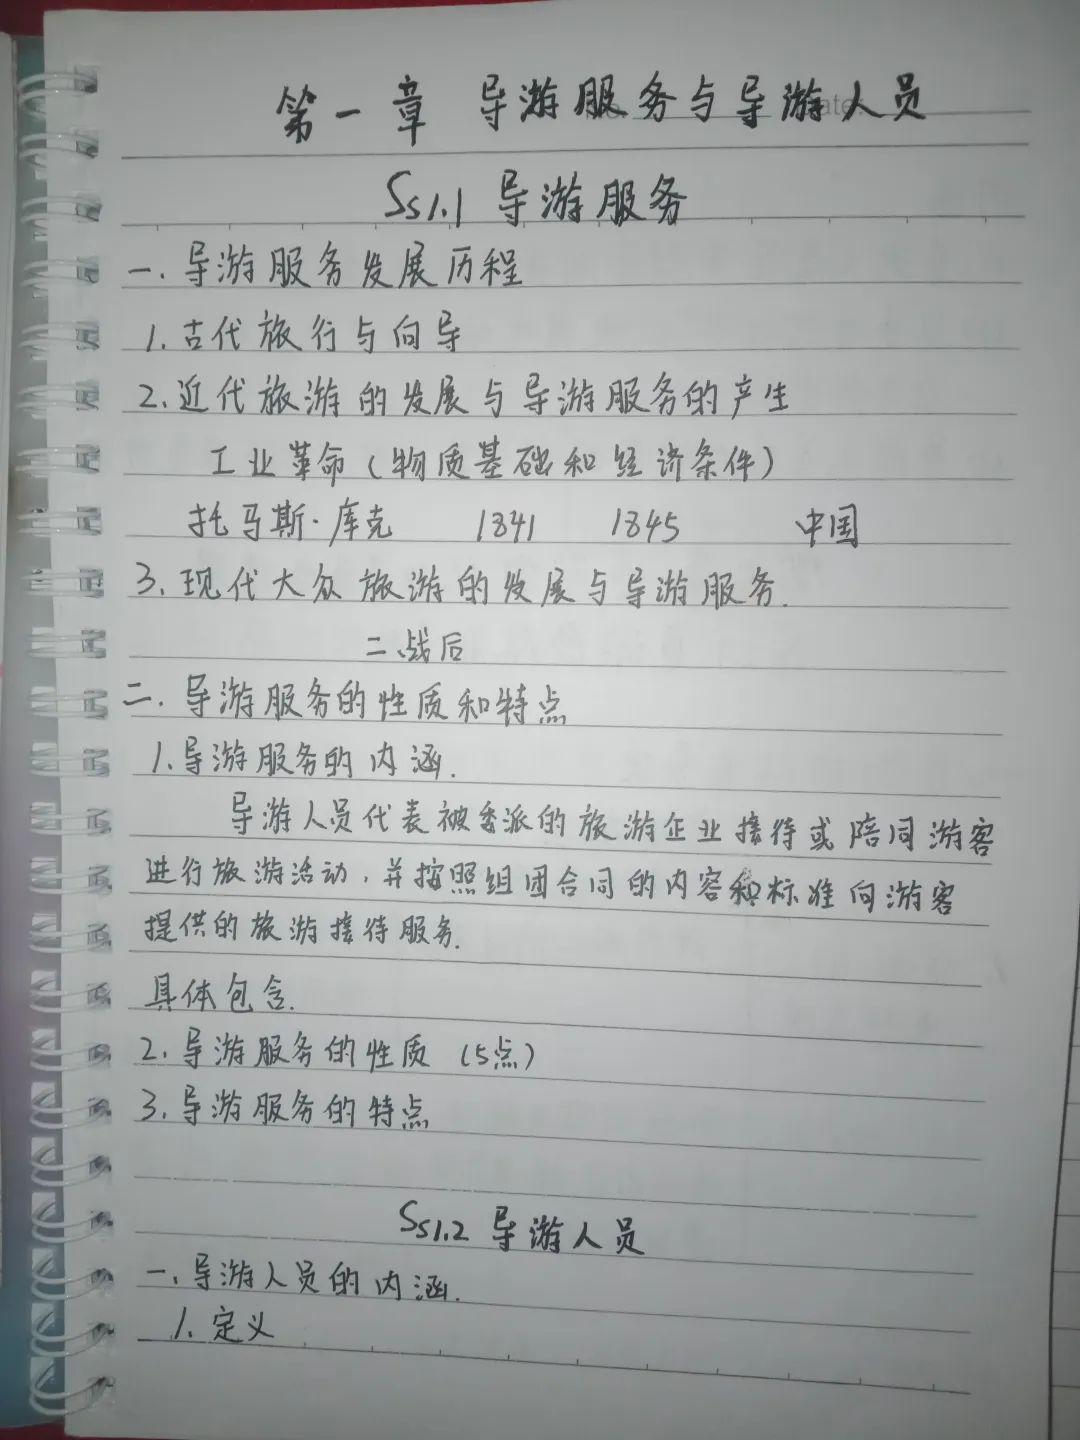 第一章 导游服务与导游人员
Ss1.1 导游服务
一.导游服务发展历程
1.古代旅行与向导
2.近代旅游的发展与导游服务的产生
工业革命(物质基础和经济条件)
托马斯·库克 1841 1845 中国
3.现代大众旅游的发展与导游服务.
二战后
二.导游服务的性质和特点
1.导游服务的内涵.
导游人员代表被委派的旅游企业接待或陪同游客
进行旅游活动,并按照组团合同的内容和标准向游客
提供的旅游接待服务.
具体包含.
2.导游服务的性质 (5点)
3.导游服务的特点
Ss1.2 导游人员
一.导游人员的内涵.
1.定义